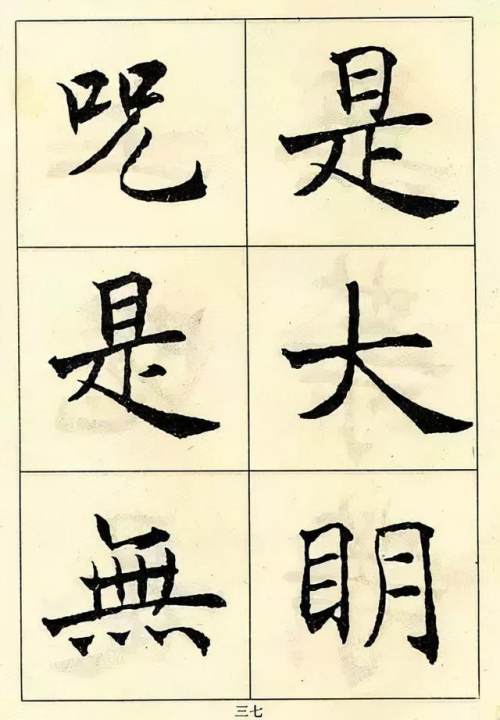 是大明
呪是無
三七